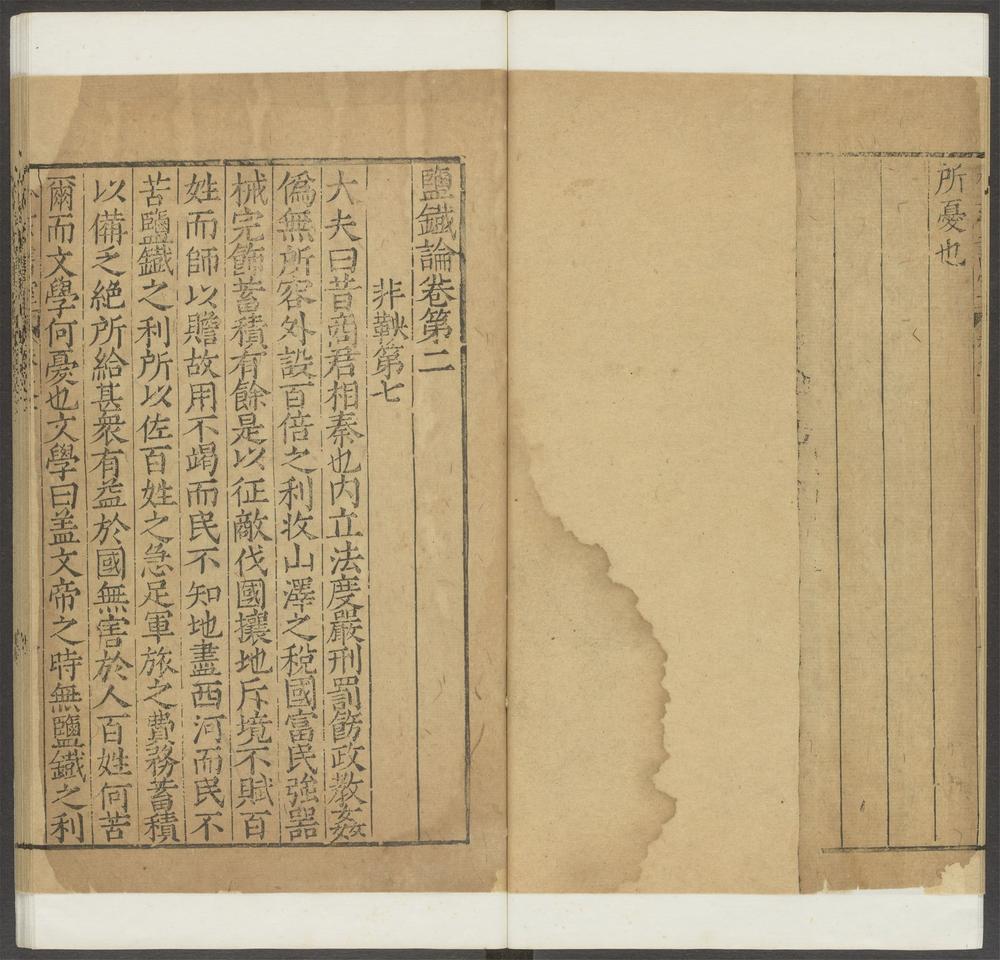 所憂也
鹽鐵論卷第二
非鞅第七
大夫曰昔商君相秦也内立法度嚴刑罰飭政教姦
偽無所容外設百倍之利收山澤之稅國富民強器
械完飾蓄積有餘是以征敵伐國攘地斥境不賦百
姓而師以贍故用不竭而民不知地盡西河而民不
苦鹽鐵之利所以佐百姓之急足軍旅之費務蓄積
以備乏絶所給甚衆有益於國無害於人百姓何苦
爾而文學何憂也文學曰盖文帝之時無鹽鐵之利